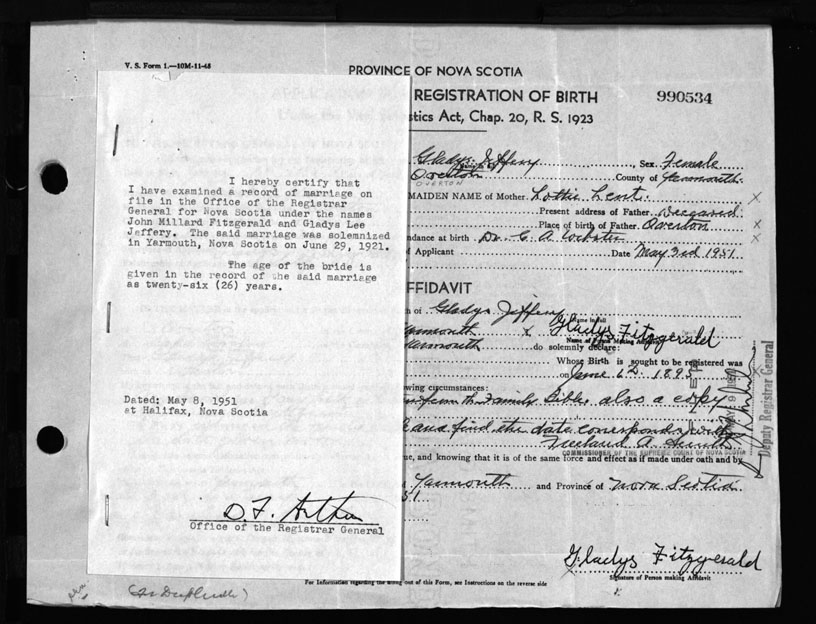 V. S. Form 1.—10M-11-45
PROVINCE OF NOVA SCOTIA
REGISTRATION OF BIRTH 990534
stics Act, Chap. 20, R. S. 1923
I hereby certify that
I have examined a record of marriage on
file in the Office of the Registrar
General for Nova Scotia under the names
John Millard Fitzgerald and Gladys Lee
Jeffery. The said marriage was solemnized
in Yarmouth, Nova Scotia on June 29, 1921.
The age of the bride is
given in the record of the said marriage
as twenty-six (26) years.
Dated: May 8, 1951
at Halifax, Nova Scotia
D. F. Arthur
Office of the Registrar General
Gladys Jeffery Sex Female
Overton County of Yarmouth
OVERTON
MAIDEN NAME of Mother Lottie Lent
Present address of Father Deceased
Place of birth of Father Overton
ndance at birth Dr. C. A.
f Applicant Date May 3rd 1951
FFIDAVIT
n of Gladys Jeffery
Name in full
Yarmouth x Gladys Fitzgerald
Name of Person Making
Yarmouth do solemnly declare:
Whose Birth is sought to be registered was
on June 6th 189
wing circumstances:
from the Family Bible also a copy
and find the date corresponds with
Freeland A.
COMMISSIONER OF THE SUPREME COURT OF NOVA SCOTIA
ue, and knowing that it is of the same force and effect as if made under oath and by
Yarmouth and Province of Nova Scotia
51
Deputy Registrar General
Gladys Fitzgerald
Signature of Person making Affidavit
For Information regarding the out of this Form, see Instructions on the reverse side